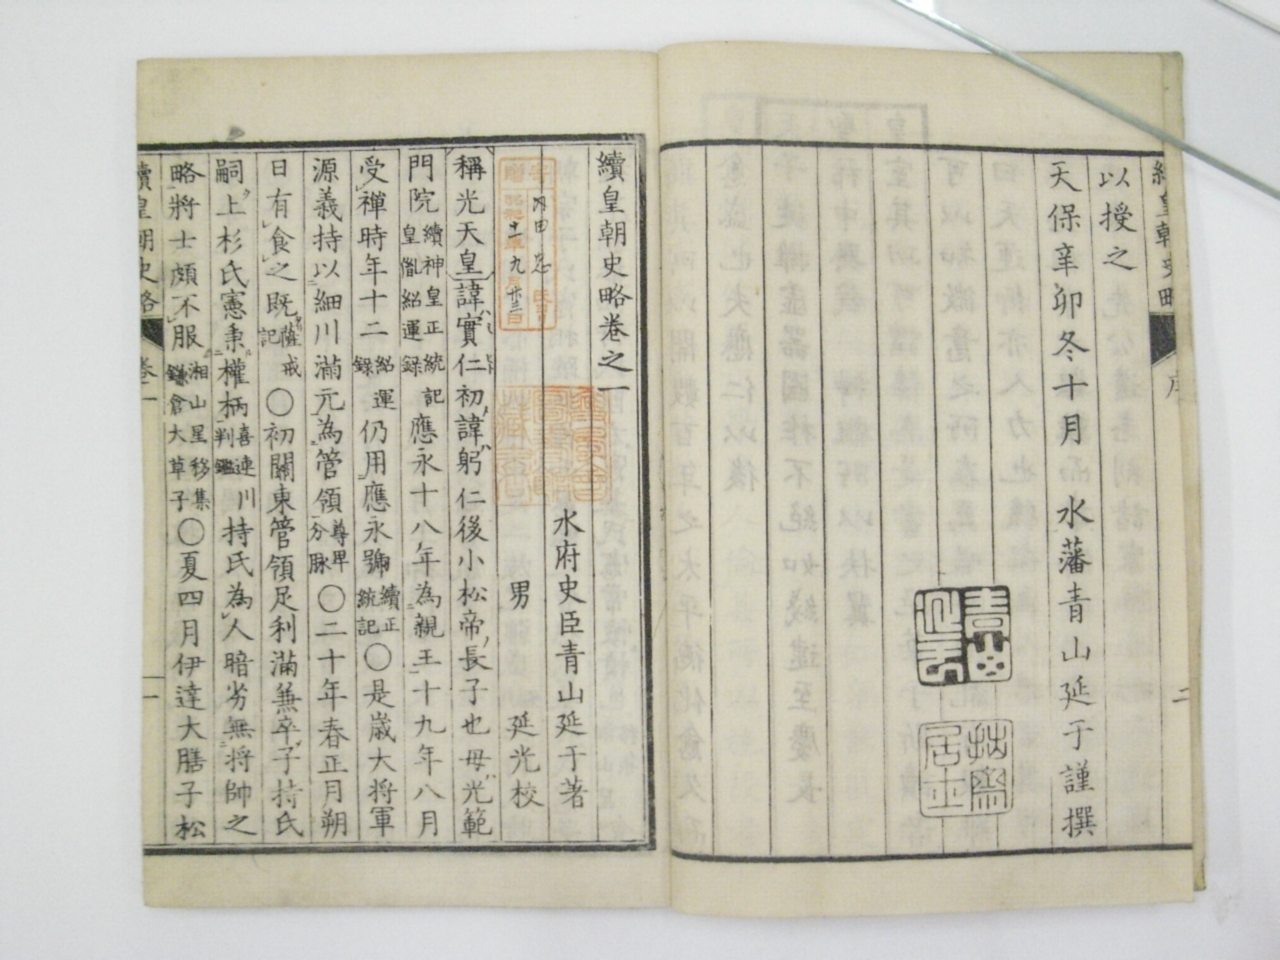 續皇朝史略
序
二
以授之
天保辛卯冬十月　水藩青山延于謹撰
青山延于
拙齋居士
續皇朝史略卷之一
水府史臣青山延于著
男　延光校
稱光天皇諱實仁初諱躬仁後小松帝長子也母光範
門院續神皇正統記皇胤紹運録應永十八年為親王十九年八月
受禪時年十二紹運録仍用應永號續正統記〇是歲大將軍
源義持以細川滿元為管領尊卑分脉〇二十年春正月朔
日有食之既薩戒記〇初關東管領足利滿兼卒子持氏
嗣上杉氏憲秉權柄喜連川判鑑持氏為人暗劣無將帥之
略將士頗不服湘山星移集鎌倉大草子〇夏四月伊達大膳子松
續皇朝史略　卷一
一